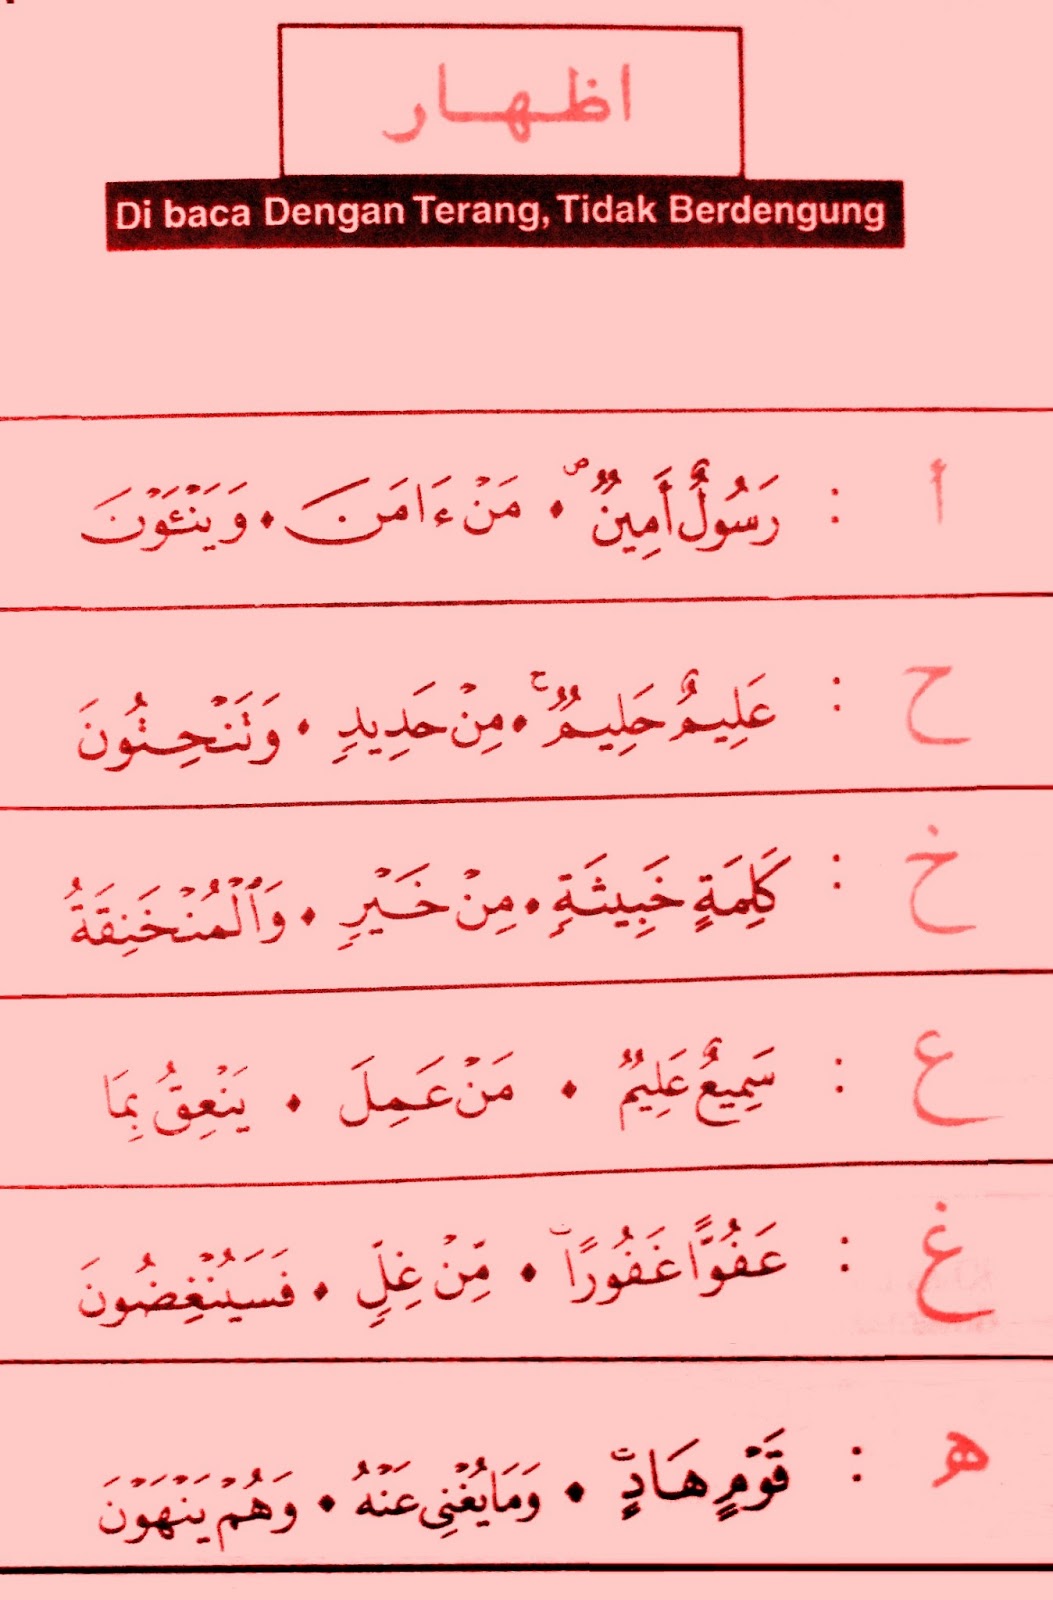 اظهار
Di baca Dengan Terang, Tidak Berdengung
أ : رَسُولٌ أَمِينٌ • مَنْ ءَامَنَ • وَيَنْـَٔوْنَ
ح : عَلِيمٌ حَلِيمٌ • مِنْ حَدِيدٍ • وَتَنْحِتُونَ
خ : كَلِمَةٍ خَبِيثَةٍ • مِنْ خَيْرٍ • وَٱلْمُنْخَنِقَةُ
ع : سَمِيعٌ عَلِيمٌ • مَنْ عَمِلَ • يَنْعِقُ بِمَا
غ : عَفُوًّا غَفُورًا • مِّنْ غِلٍّ • فَسَيُنْغِضُونَ
ه : قَوْمٍ هَادٍ • وَمَا يُغْنِى عَنْهُ • وَهُمْ يَنْهَوْنَ